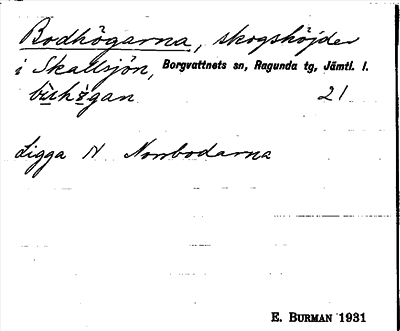 Bodhögarna, skogshöjder
i Skallsjön, Borgvattnets sn, Ragunda tg, Jämtl. l.
21
Ligga N Norrbodarna
E. BURMAN 1931